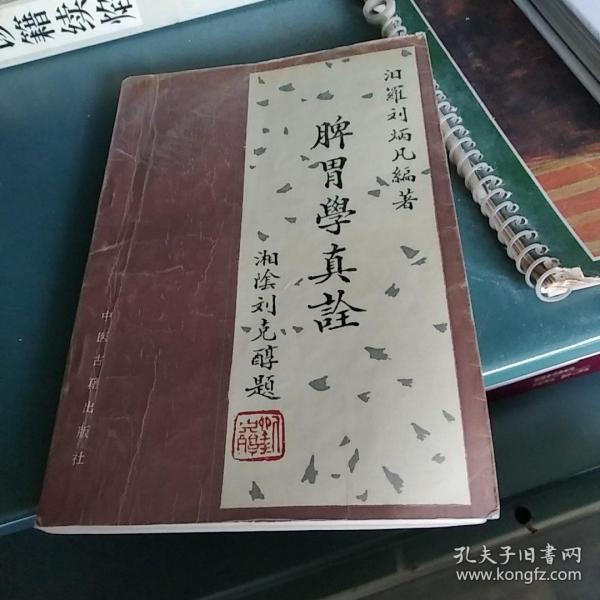 汨羅刘炳凡編著
脾胃學真詮
湘陰刘克醇題
中医古籍出版社
籍续
孔夫子旧书网
www.kongfz.com